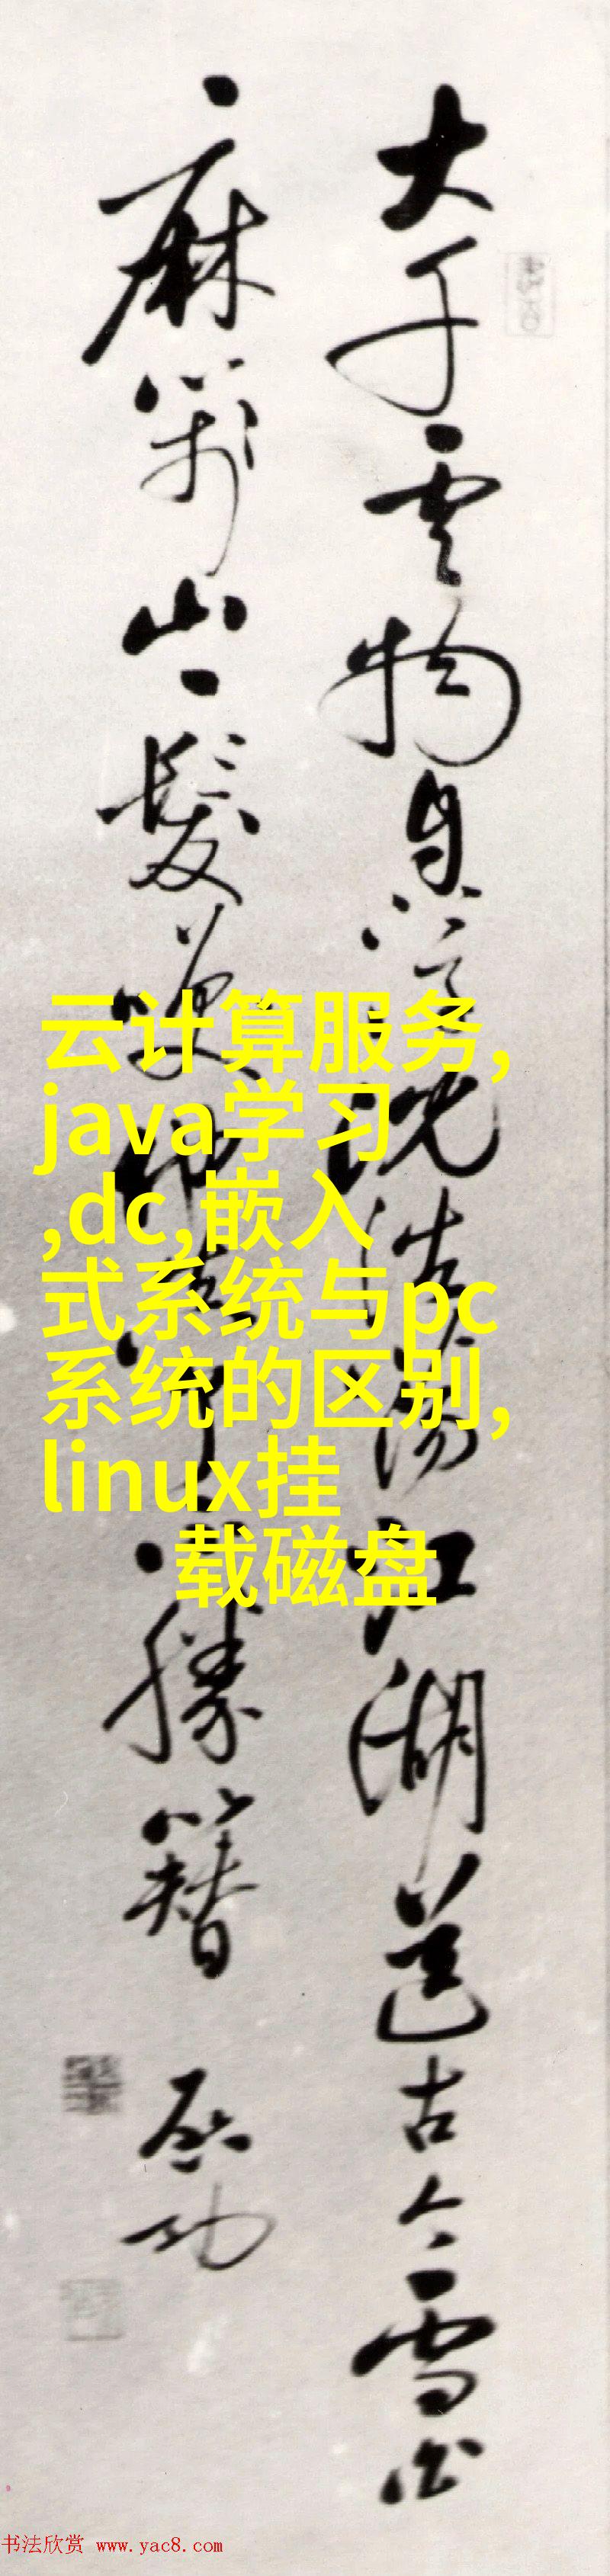 大千雲物自沈浩蕩江湖送古今雪
山髮勝簪
启功
云计算服务,
java学习
,dc,嵌入
式系统与pc
系统的区别,
linux挂
载磁盘
书法欣赏 www.yac8.com